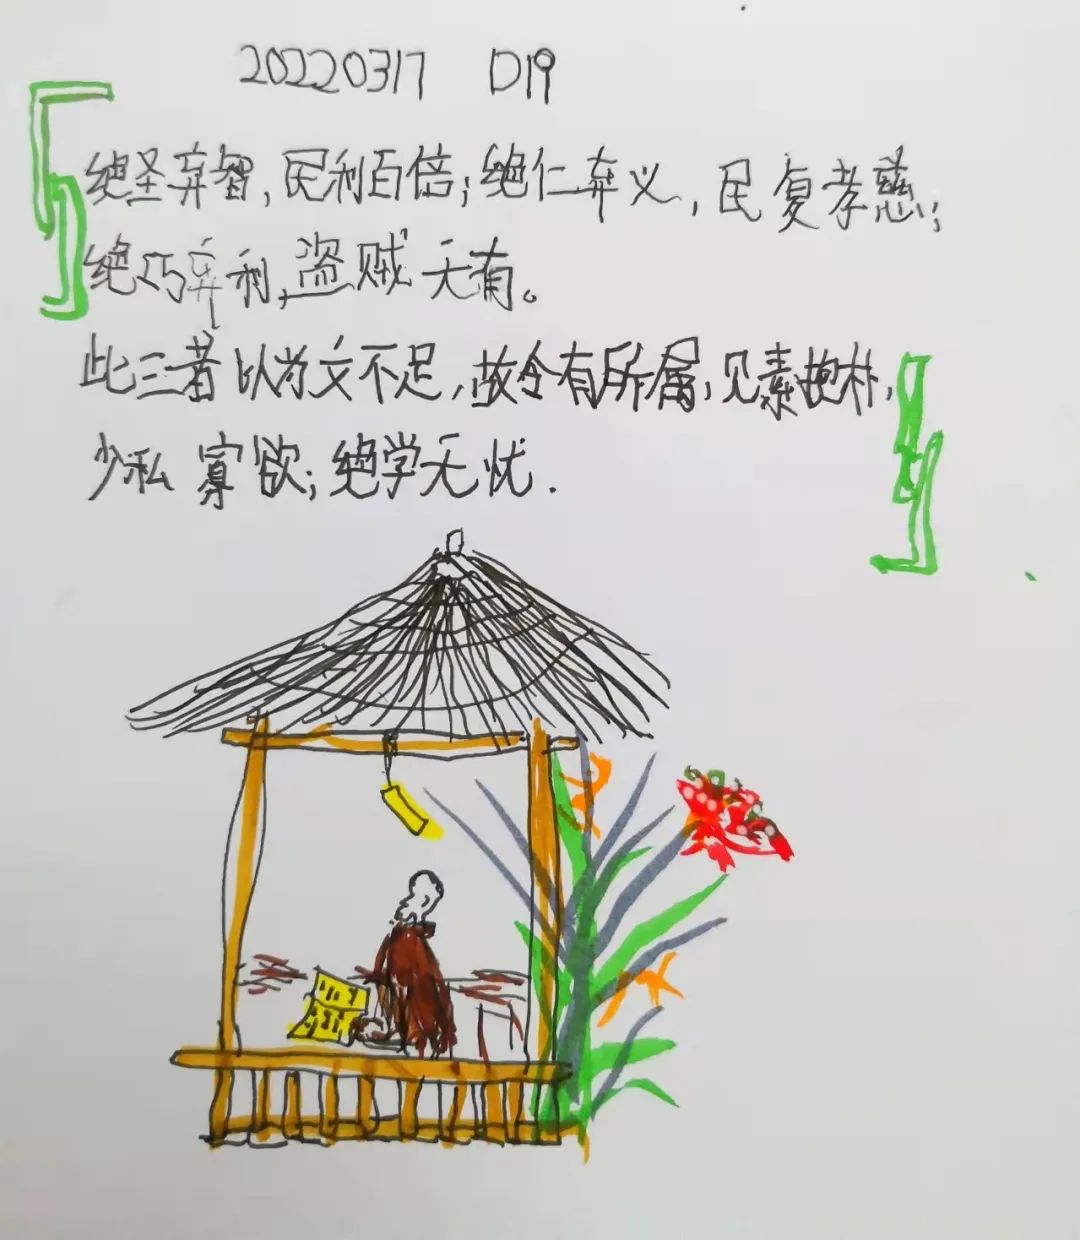 20220317 D19
绝圣弃智，民利百倍；绝仁弃义，民复孝慈；
绝巧弃利，盗贼无有。
此三者以为文不足，故令有所属，见素抱朴，
少私寡欲；绝学无忧.